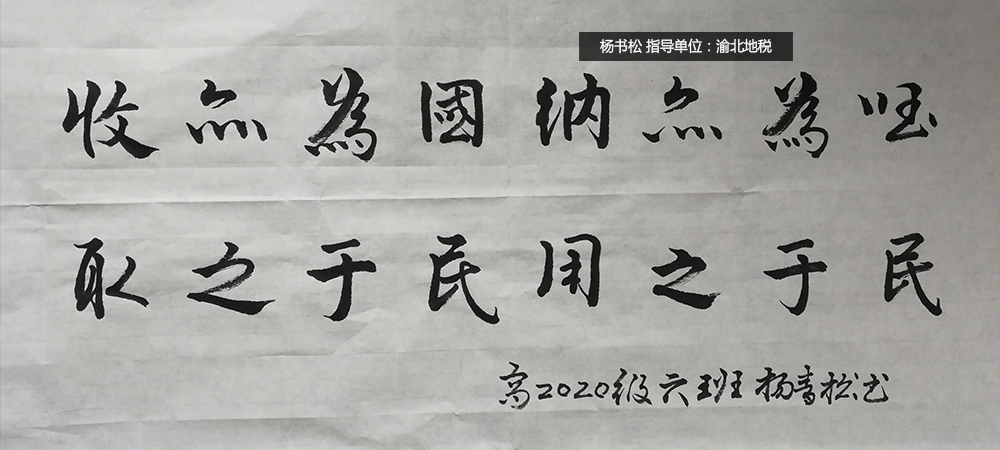 杨书松 指导单位：渝北地税
收亦為國纳亦為
取之于民用之于民
高2020级六班 杨青松书